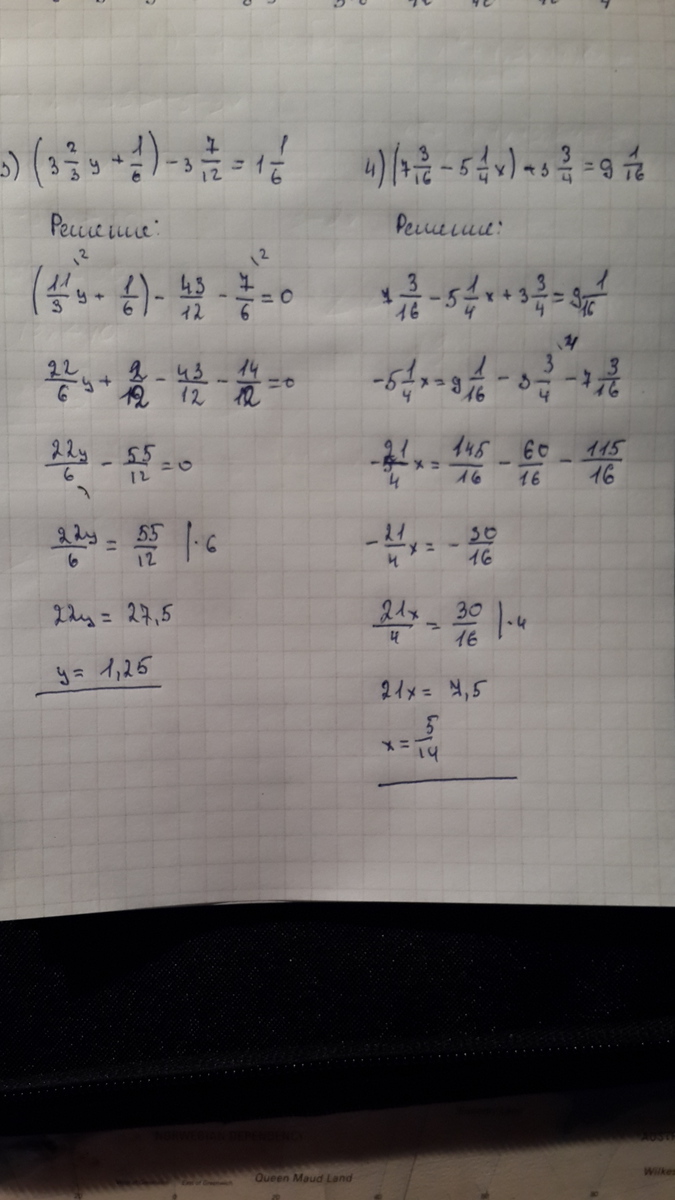 3) (3 2/3 y + 1/6) - 3 7/12 = 1 1/6
Решение:
(11/3 y + 1/6) - 43/12 - 7/6 = 0
22/6 y + 2/12 - 43/12 - 14/12 = 0
22y/6 - 55/12 = 0
22y/6 = 55/12 | · 6
22y = 27,5
y = 1,25
4) (7 3/16 - 5 1/4 x) + 3 3/4 = 9 1/16
Решение:
7 3/16 - 5 1/4 x + 3 3/4 = 9 1/16
-5 1/4 x = 9 1/16 - 3 3/4 - 7 3/16
-21/4 x = 145/16 - 60/16 - 115/16
-21/4 x = - 30/16
21x/4 = 30/16 | · 4
21x = 7,5
x = 5/14
Queen Maud Land
Wilkes